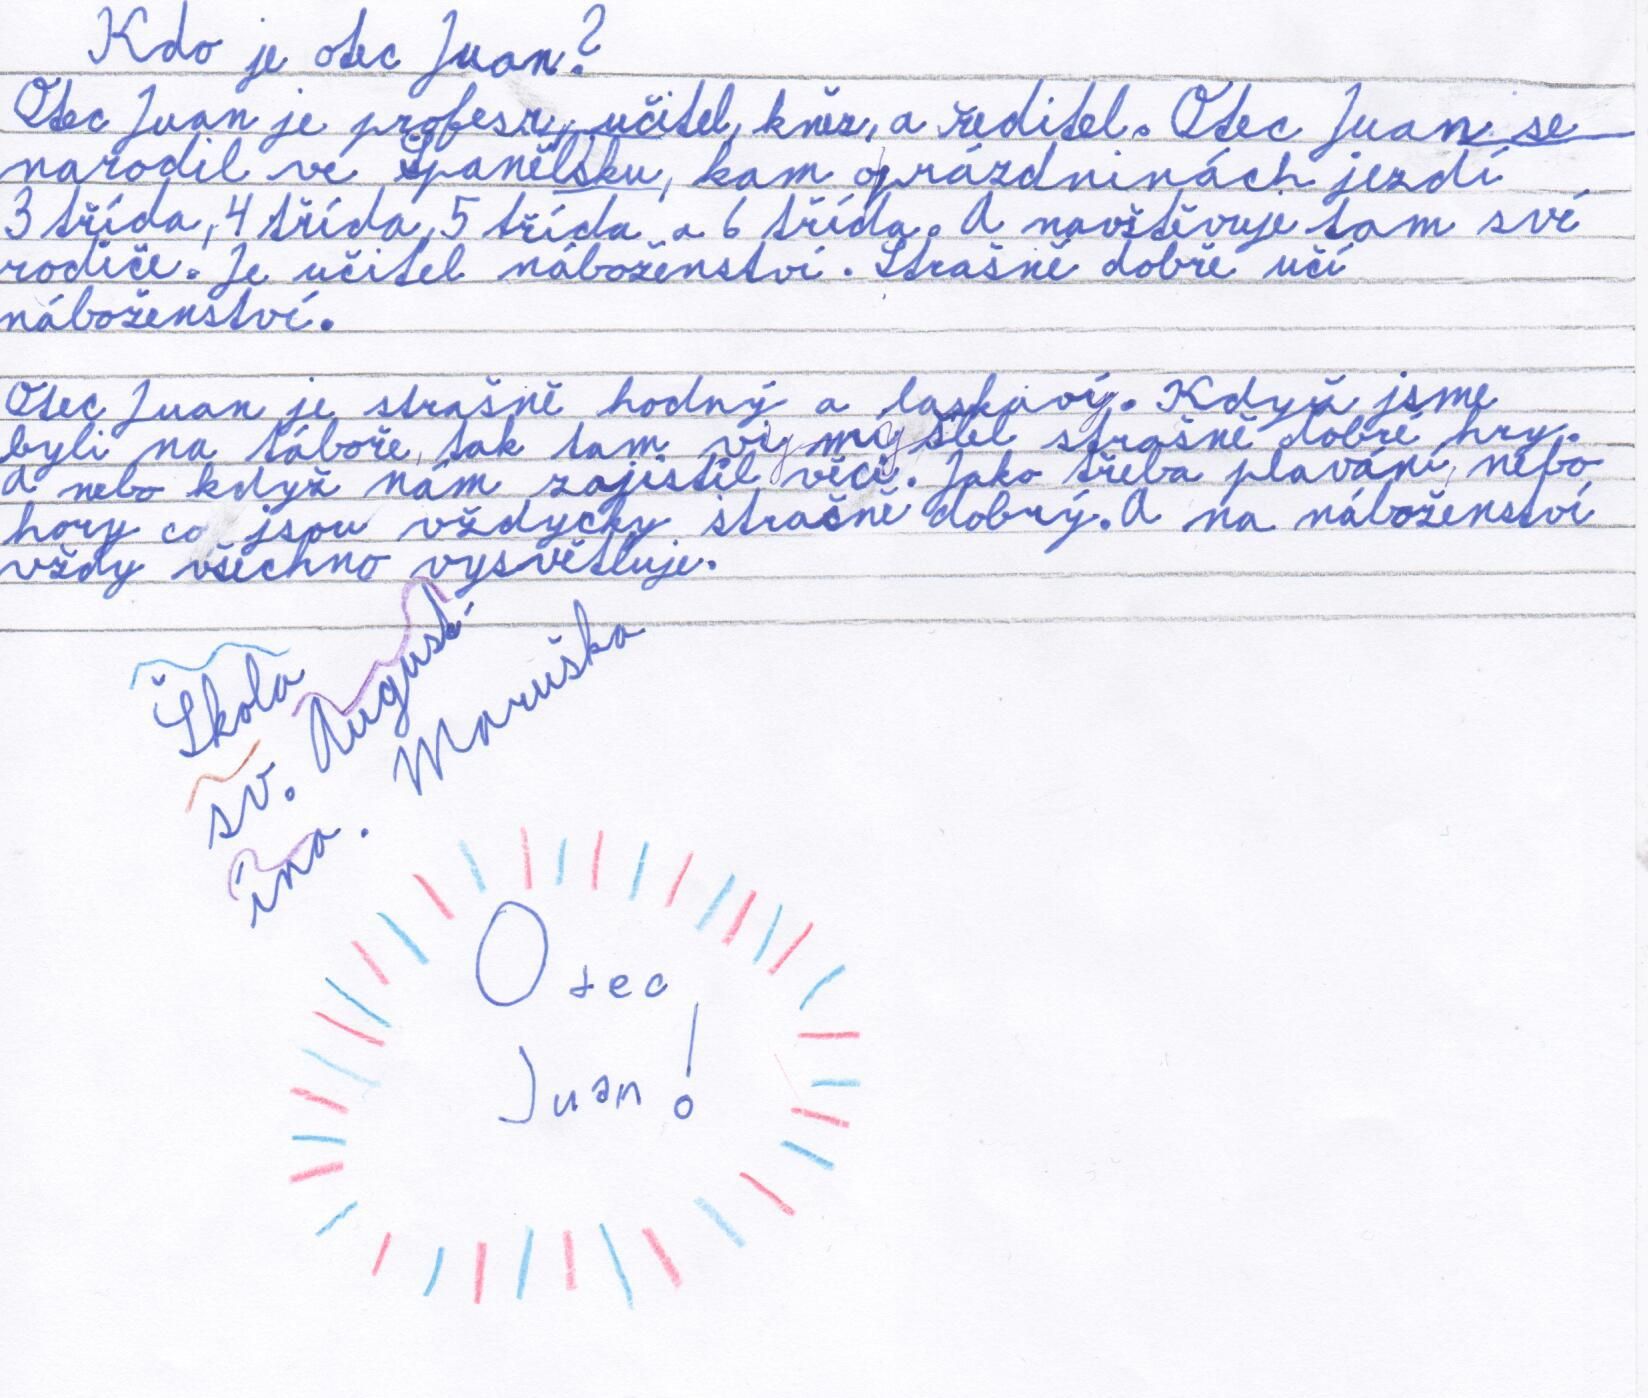 Kdo je otec Juan?
Otec Juan je profesr, učitel, kněz, a ředitel. Otec Juan se
narodil ve Španělsku, kam o prázdninách jezdí
3 třída, 4 třída, 5 třída a 6 třída. A navštěvuje tam své
rodiče. Je učitel náboženství. Strašně dobře učí
náboženství.
Otec Juan je strašně hodný a laskavý. Když jsme
byli na táboře, tak tam vymyslel strašně dobré hry.
A nebo když nám zajistil věci. Jako třeba plavání, nebo
hory co jsou vždycky stračně dobrý. A na náboženství
vždy všechno vysvětluje.
Škola
sv. August
ína. Maruška
Otec
Juan!